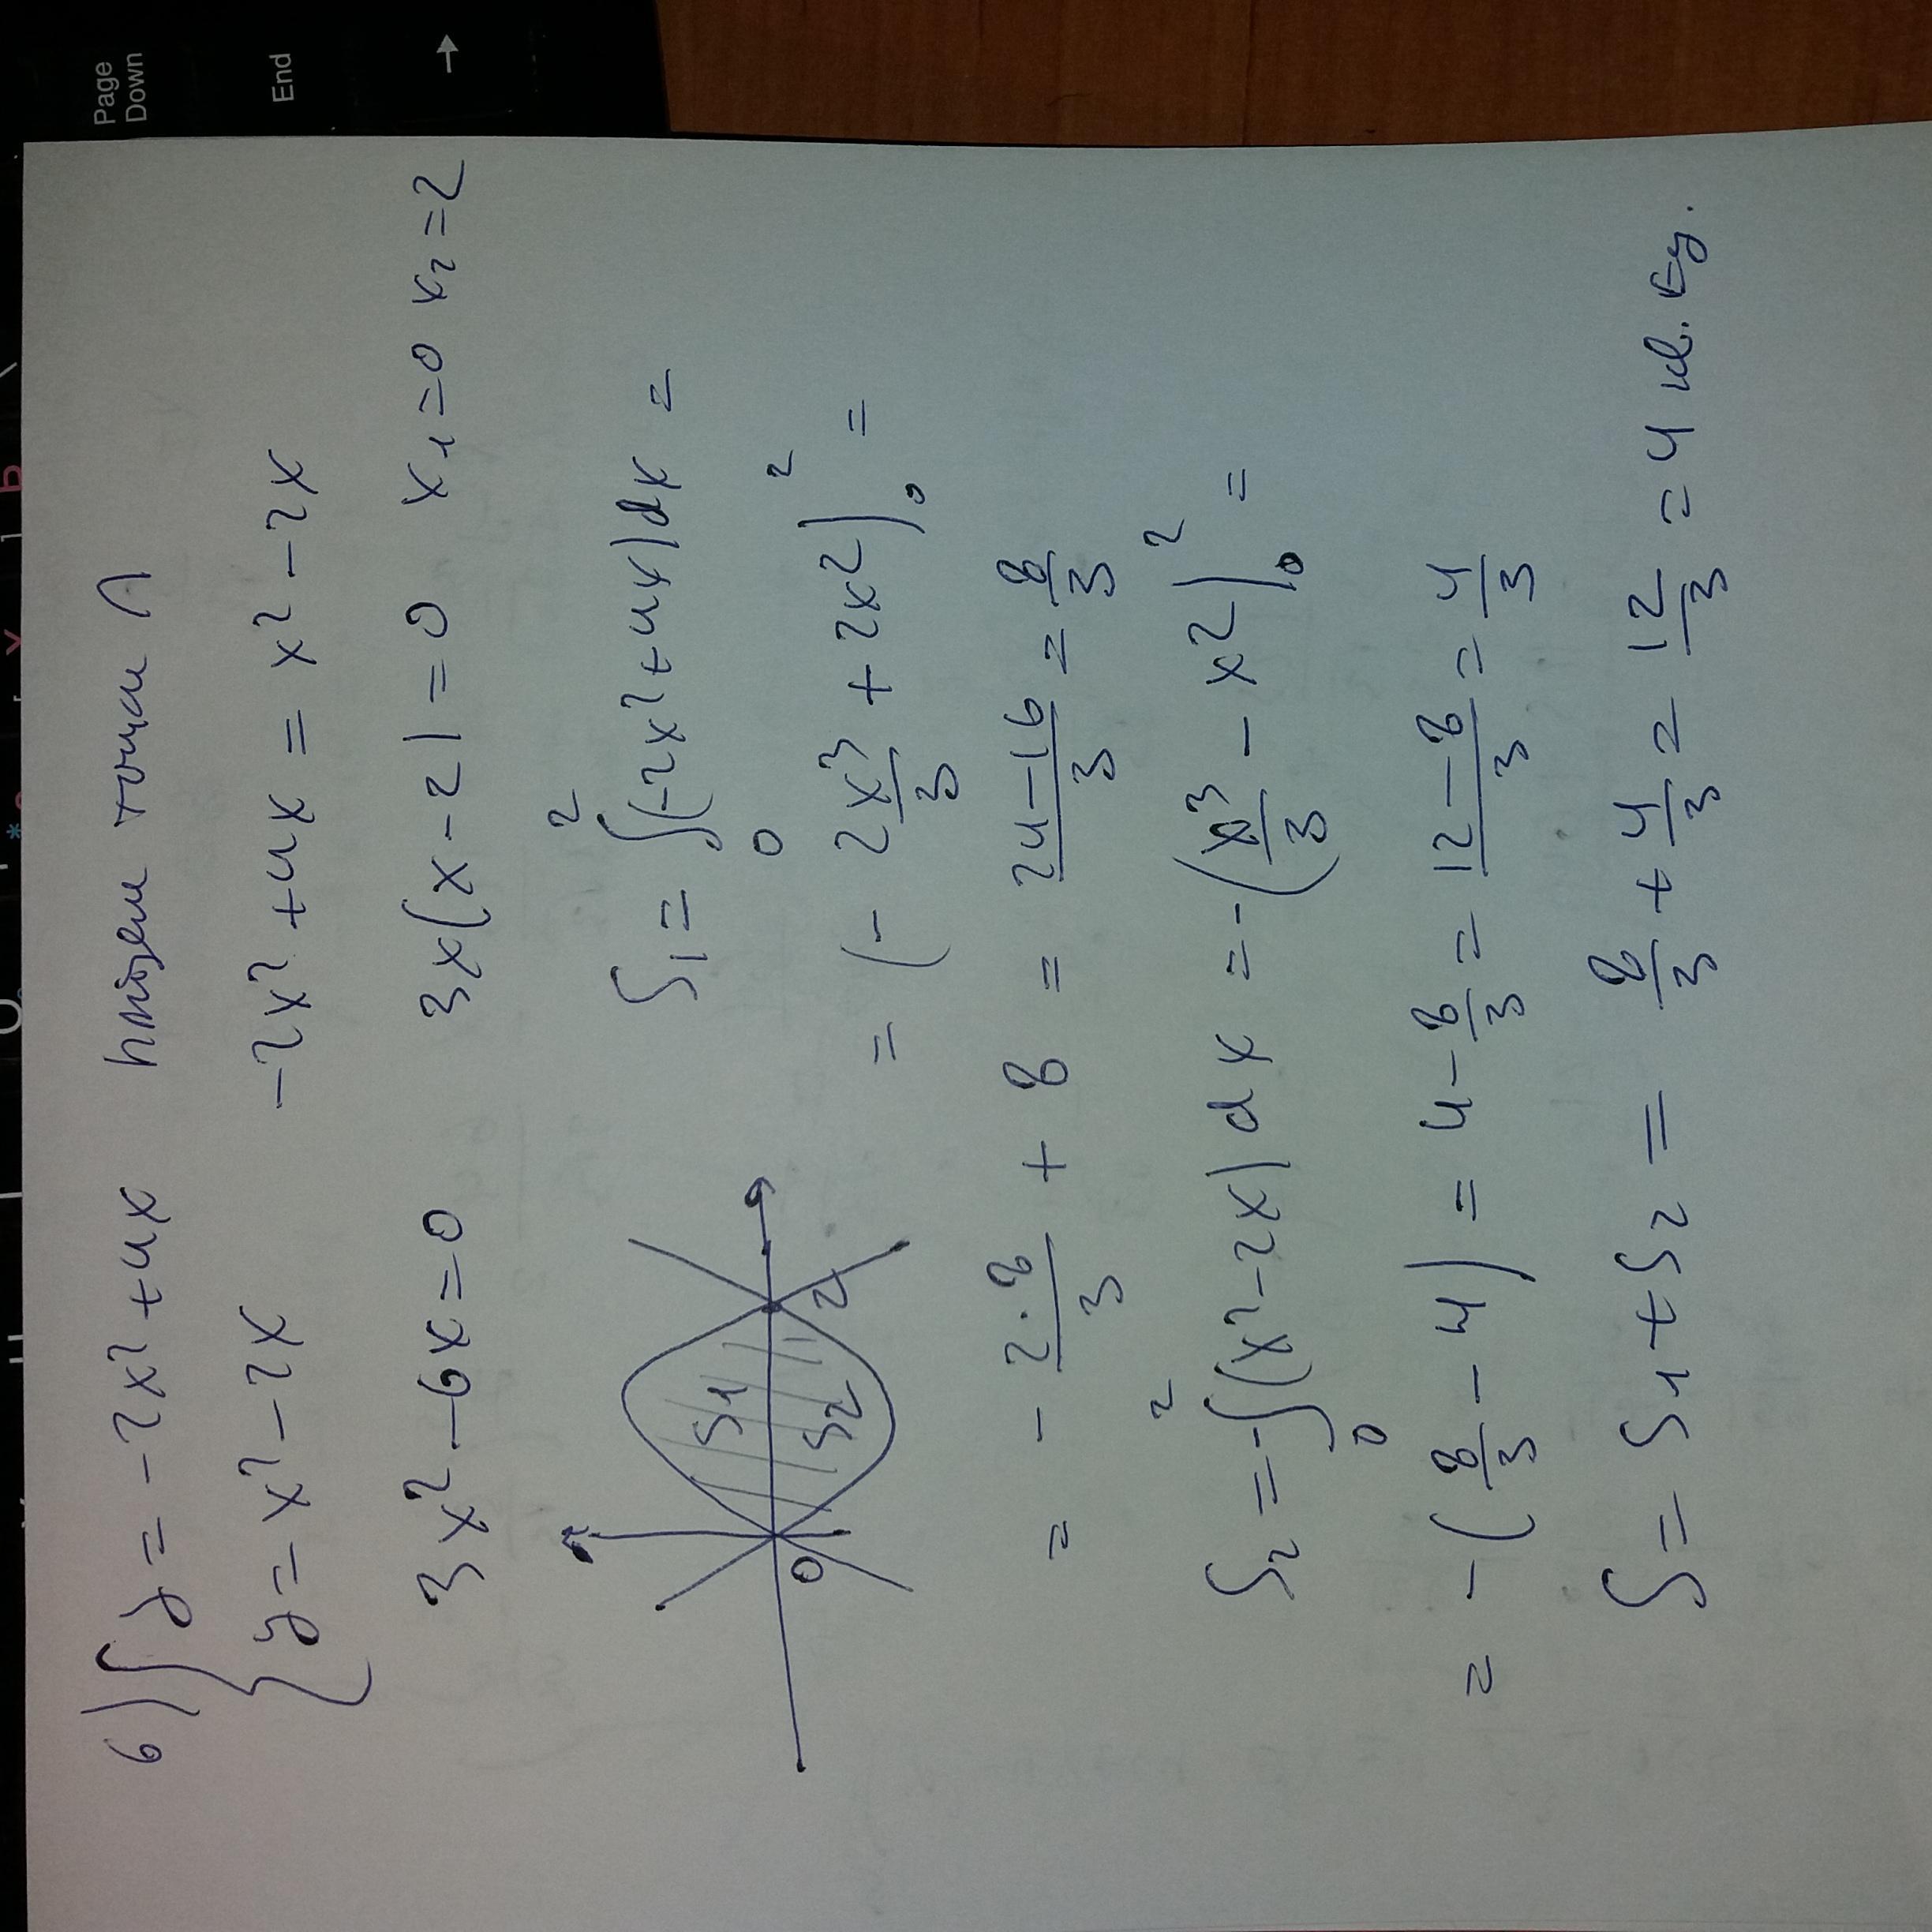 Page
Down
End
→
6) { y = -2x² + 4x найдем точки ∩
y = x² - 2x -2x² + 4x = x² - 2x
3x² - 6x = 0 3x(x - 2) = 0 x₁ = 0 x₂ = 2
S₁ = ∫₀² (-2x² + 4x)dx =
= (- 2x³/3 + 2x²)|₀² =
S₁
S₂
0 2
= - 2·8/3 + 8 = 24-16/3 = 8/3
S₂ = -∫₀² (x² - 2x)dx = -(x³/3 - x²)|₀² =
= -(8/3 - 4) = 4 - 8/3 = 12-8/3 = 4/3
S = S₁ + S₂ = 8/3 + 4/3 = 12/3 = 4 кв. ед.